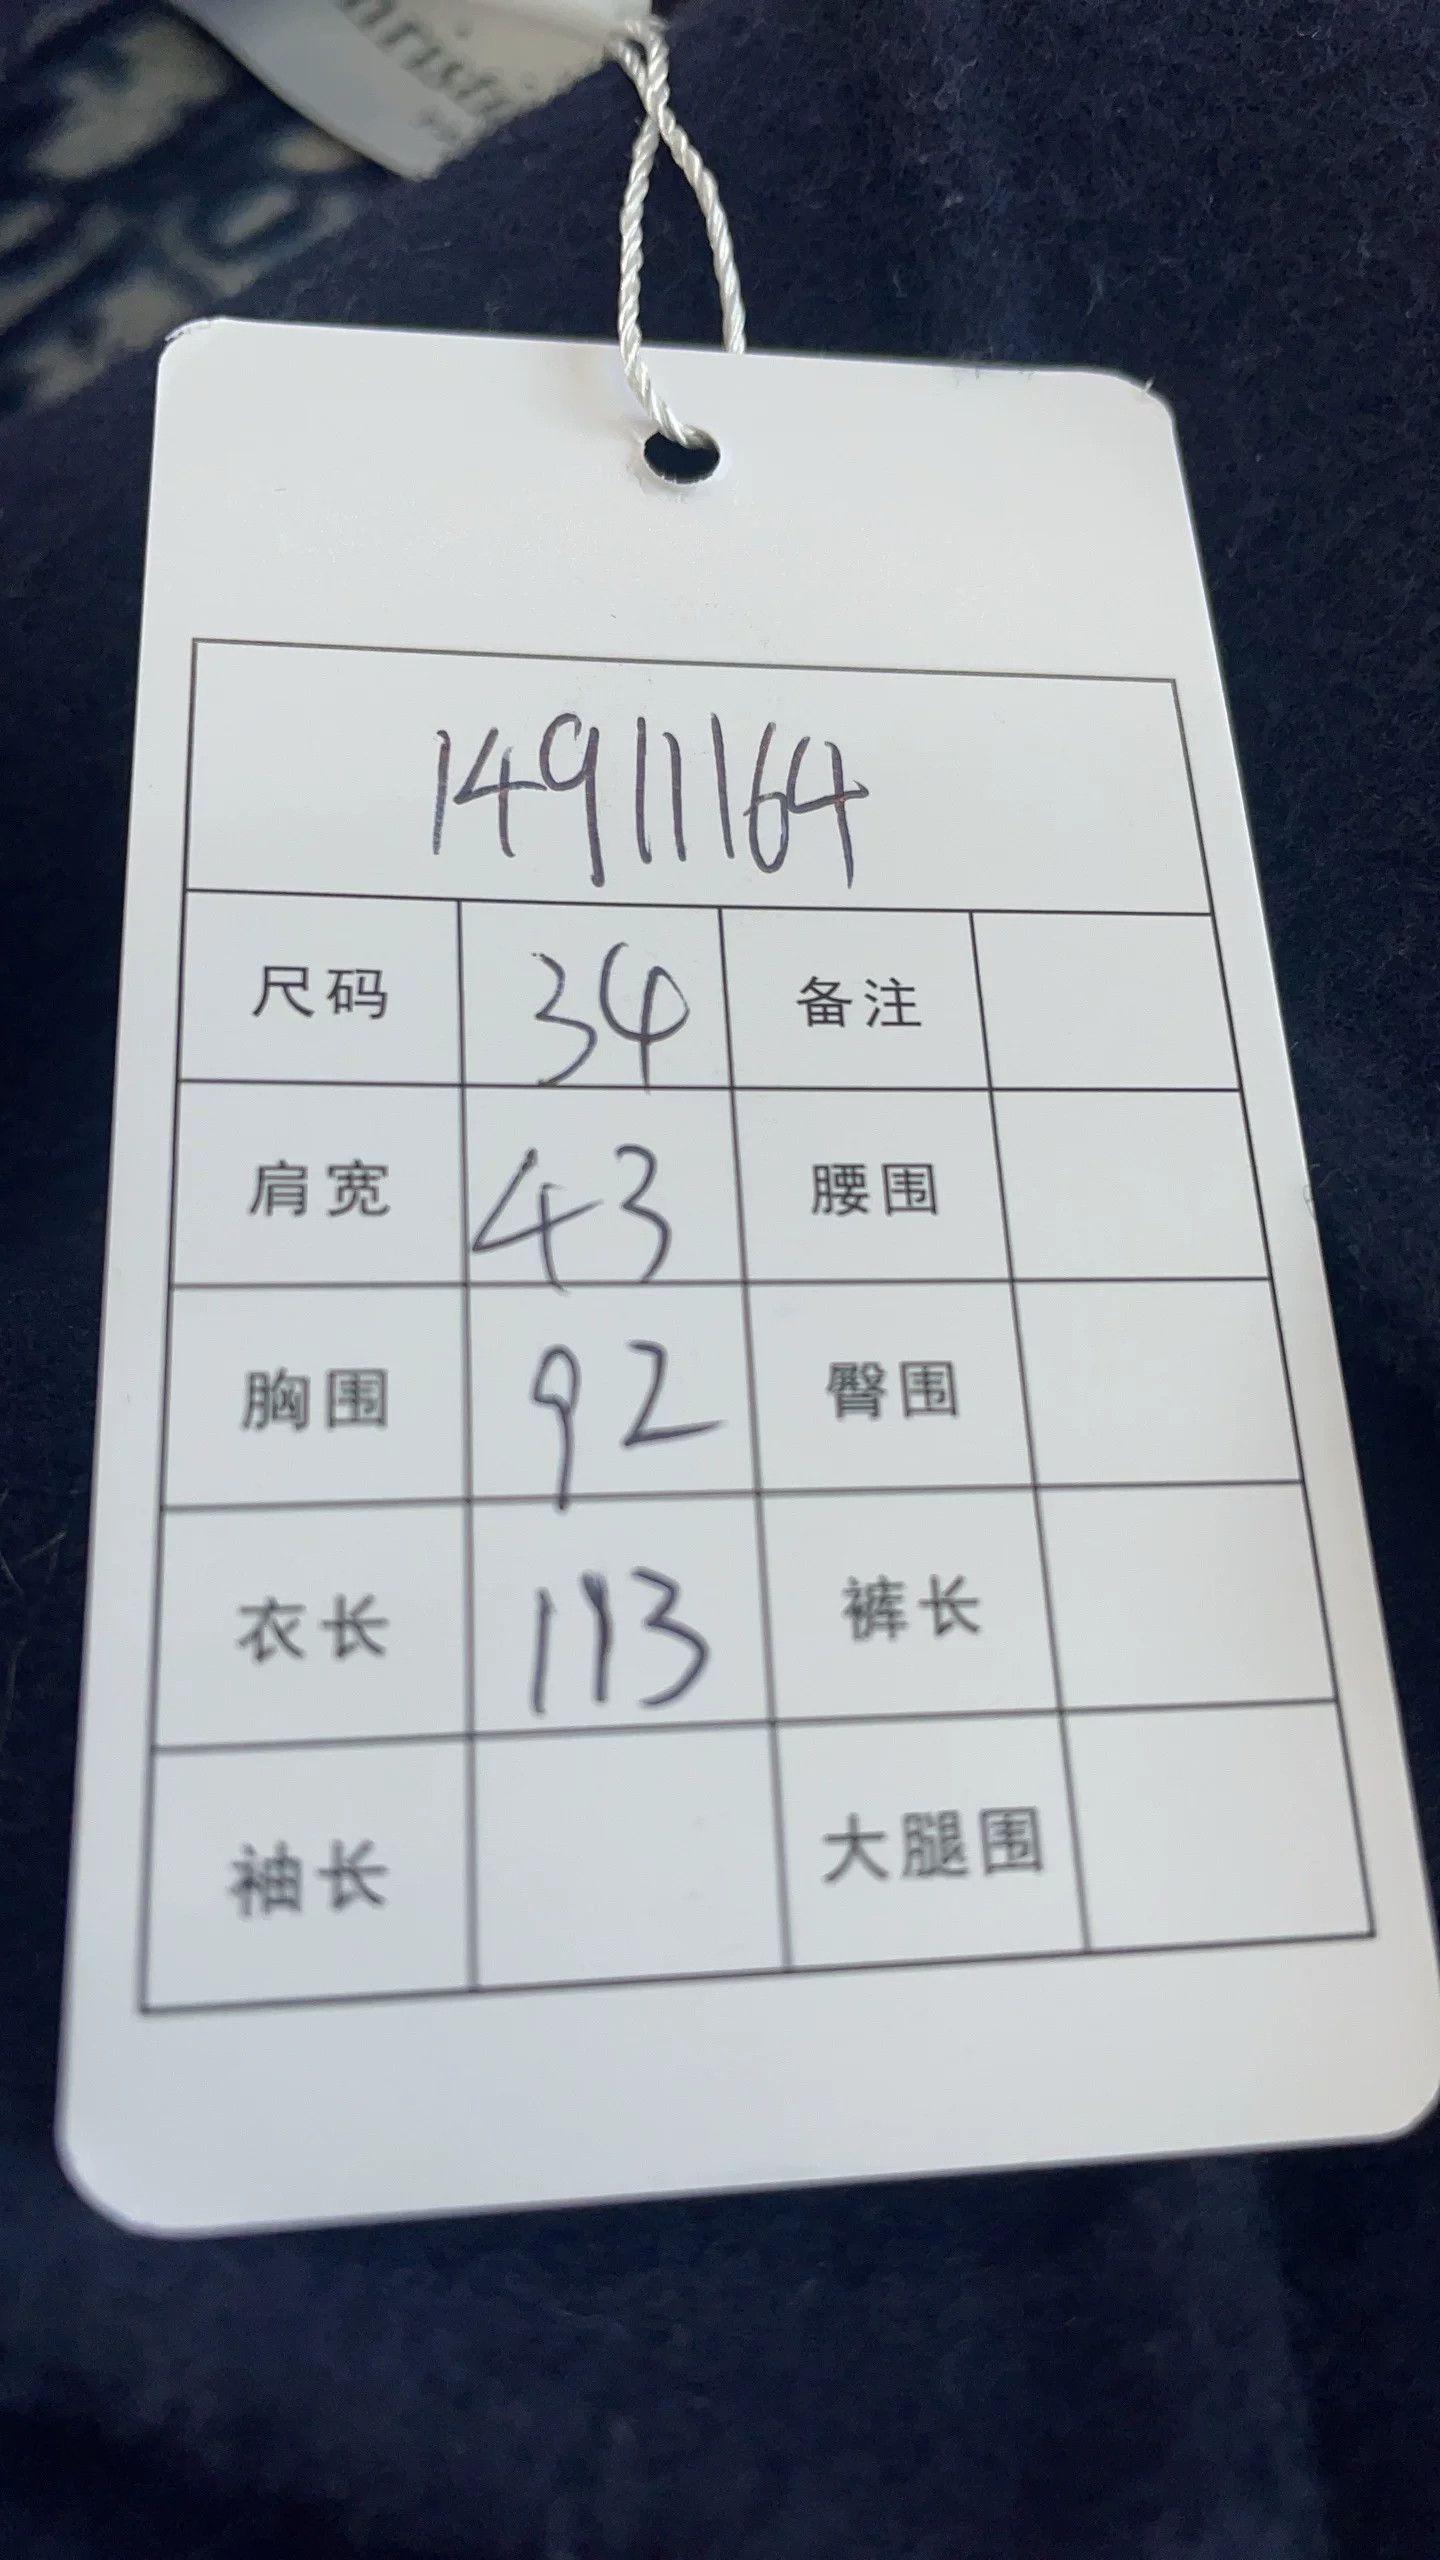 14911164
尺码 34 备注
肩宽 43 腰围
胸围 92 臀围
衣长 113 裤长
袖长 大腿围